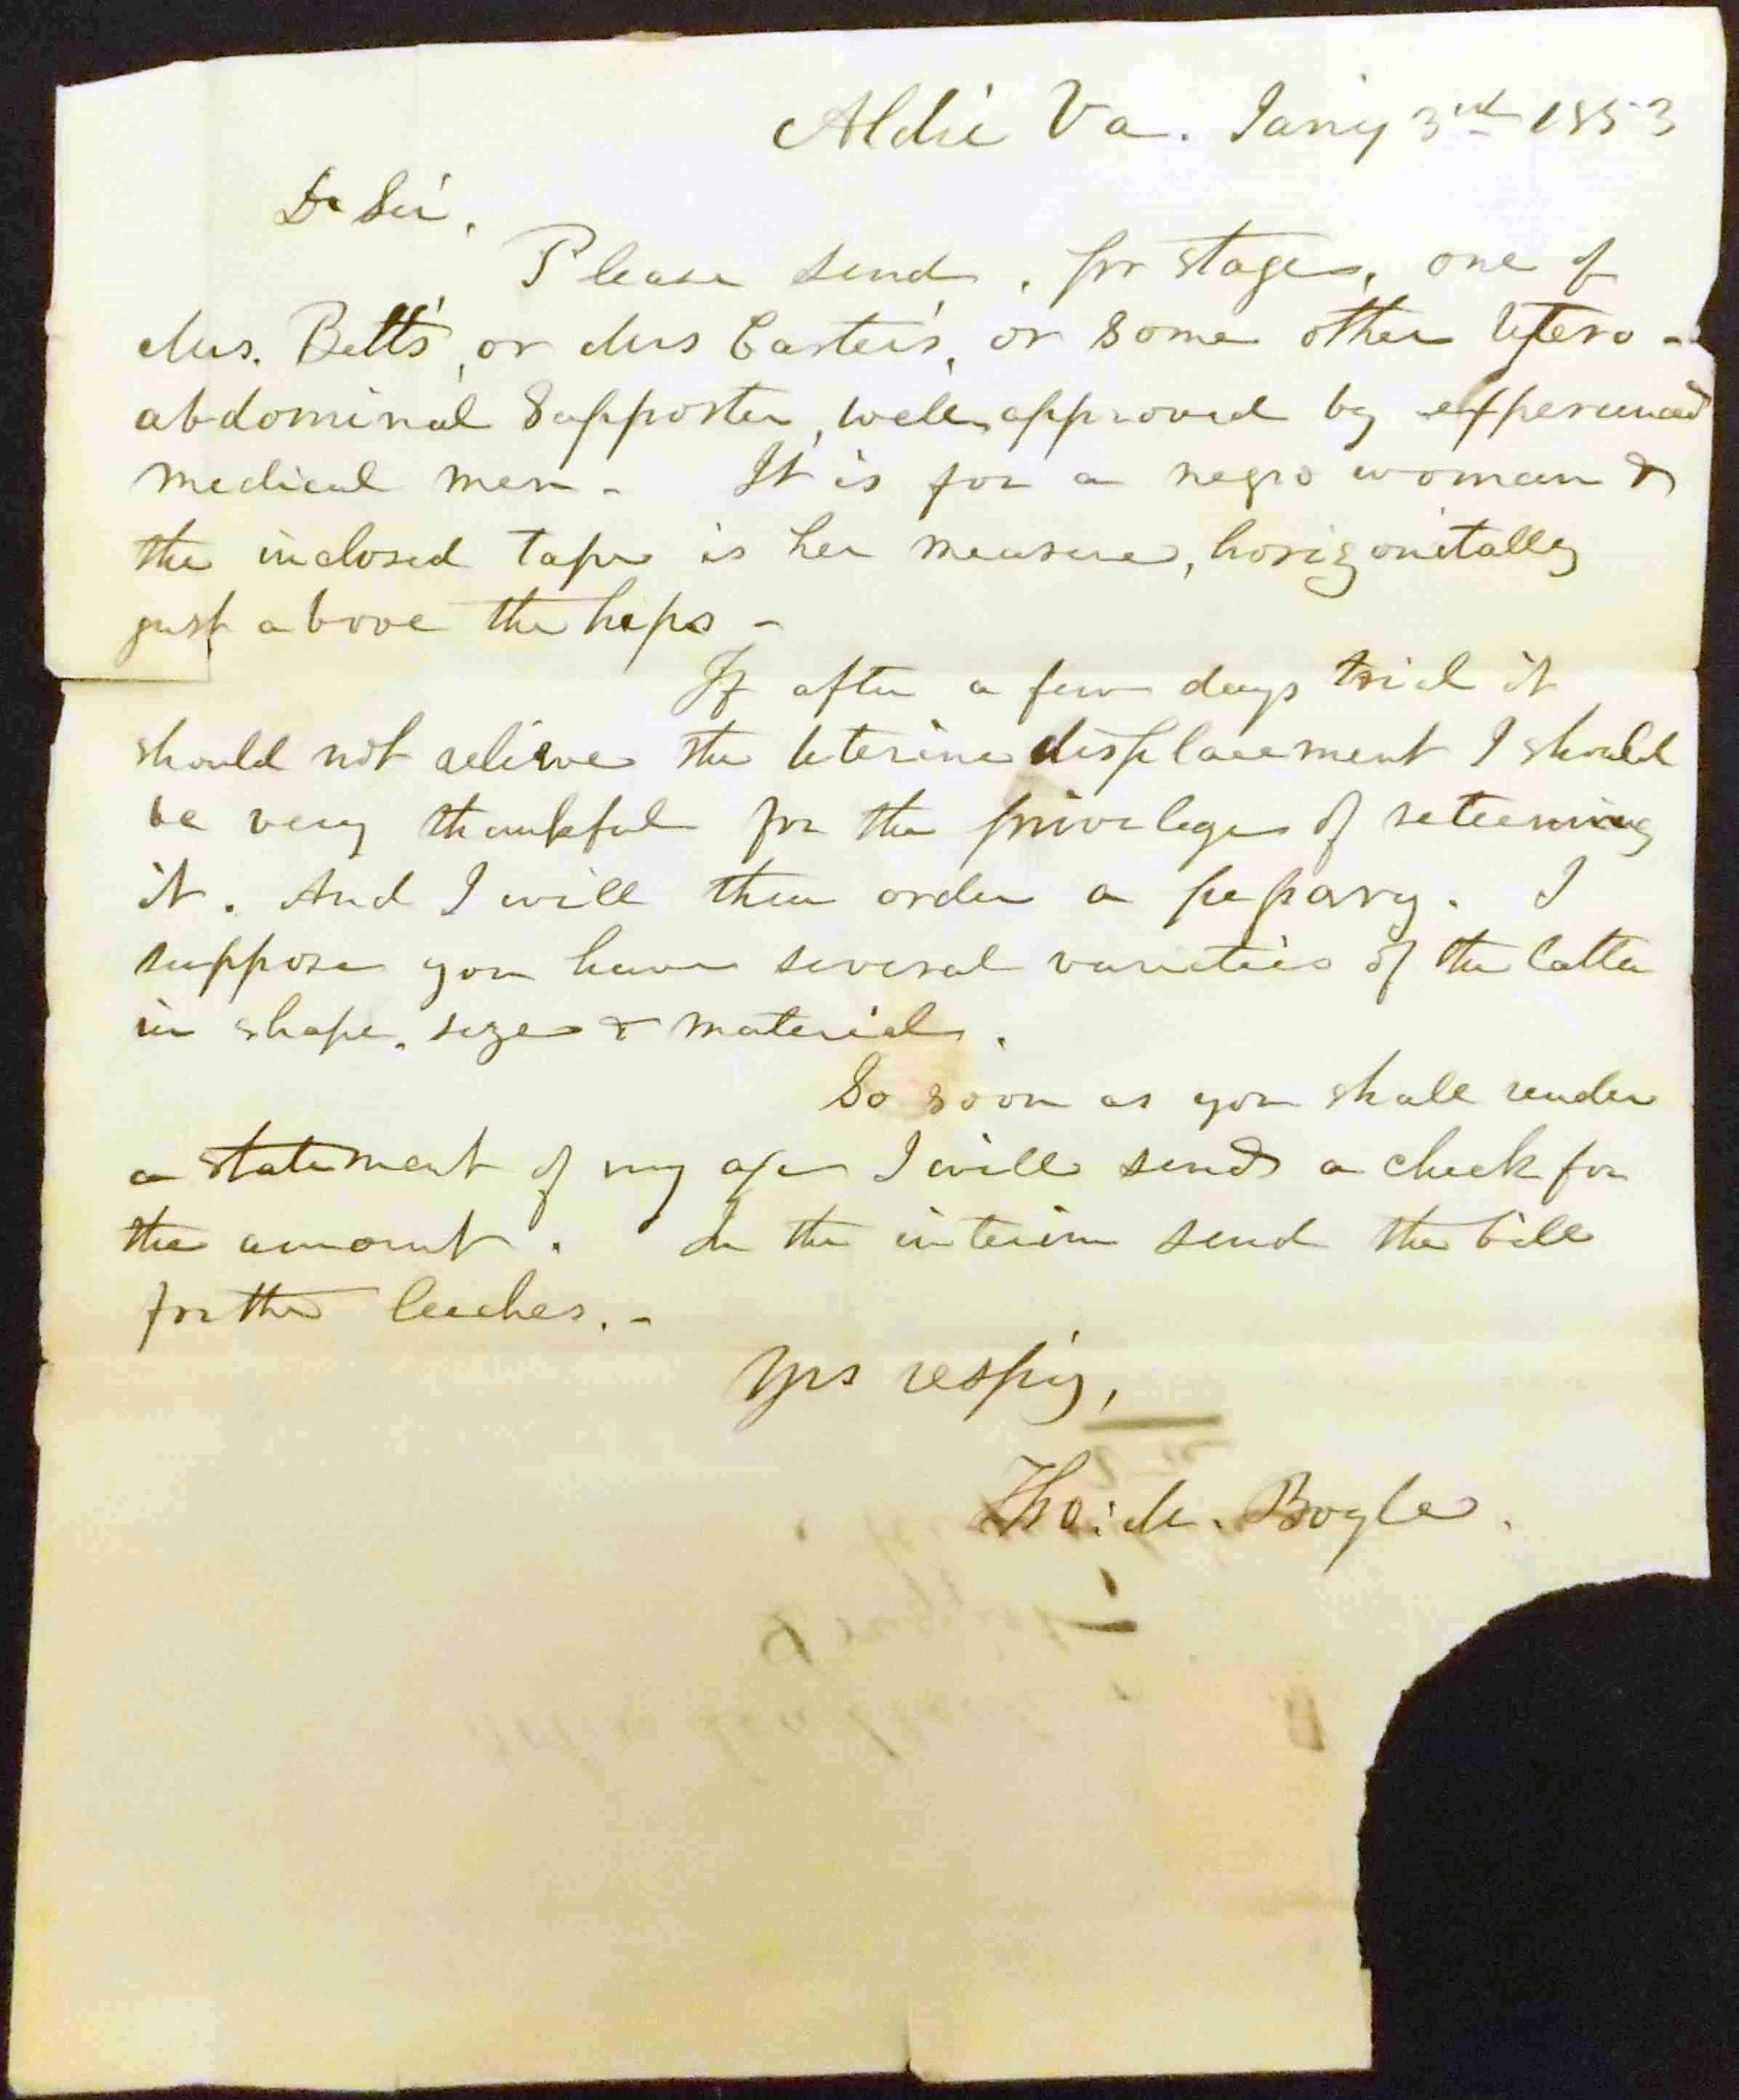 Aldie Va. Jany 3rd 1853
Dr Sir,
Please send, pr stage, one of
Mrs. Betts', or Mrs Carter's, or some other Utero-
abdominal Supporter, well approved by experienced
medical men - It is for a negro woman &
the inclosed tape is her measure, horizontally
just above the hips -
If after a few days trial it
should not relieve the uterine displacement I should
be very thankful for the privilege of returning
it. And I will then order a pessary. I
suppose you have several varieties of the latter
in shape, size & material.
So soon as you shall render
a statement of my a/c I will send a check for
the amount. In the interim send the bill
for the leeches. -
Yrs respy,
Tho: M. Bogle.